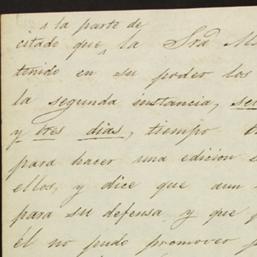 ^ la parte de
citado que ^ la Srã M
tenido en su poder los
la segunda instancia, se
y tres dias, tiempo
para hacer una edicion
ellos, y dice que aun
para su defensa y que
él no pudo promover p